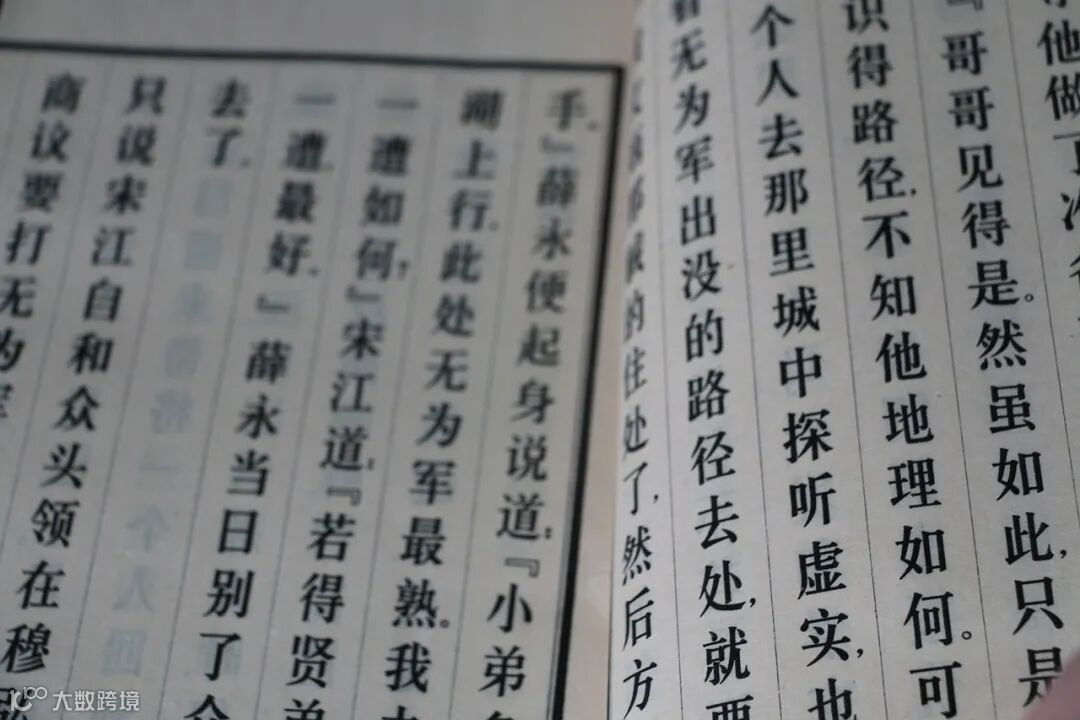 他做了冷
『哥哥见得是。然虽如此,只是
识得路径,不知他地理如何。可
个人去那里城中探听虚实,也
看无为军出没的路径去处,就要
的住处了,然后方
手。』薛永便起身说道:『小弟
湖上行,此处无为军最熟。我
一遭如何?』宋江道:『若得贤弟
一遭,最好。』薛永当日别了众
去了。
只说宋江自和众头领在穆
商议要打无为军
大数跨境